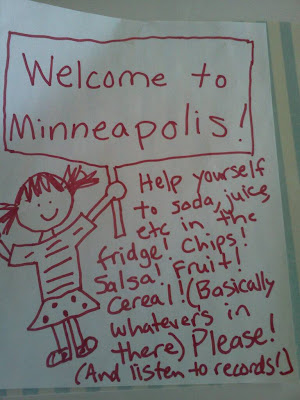 Welcome to
Minneapolis!
Help yourself
to soda, juice
etc in the
fridge! Chips!
Salsa! Fruit!
Cereal! (Basically
whatever's in
there) Please!
(And listen to records!)